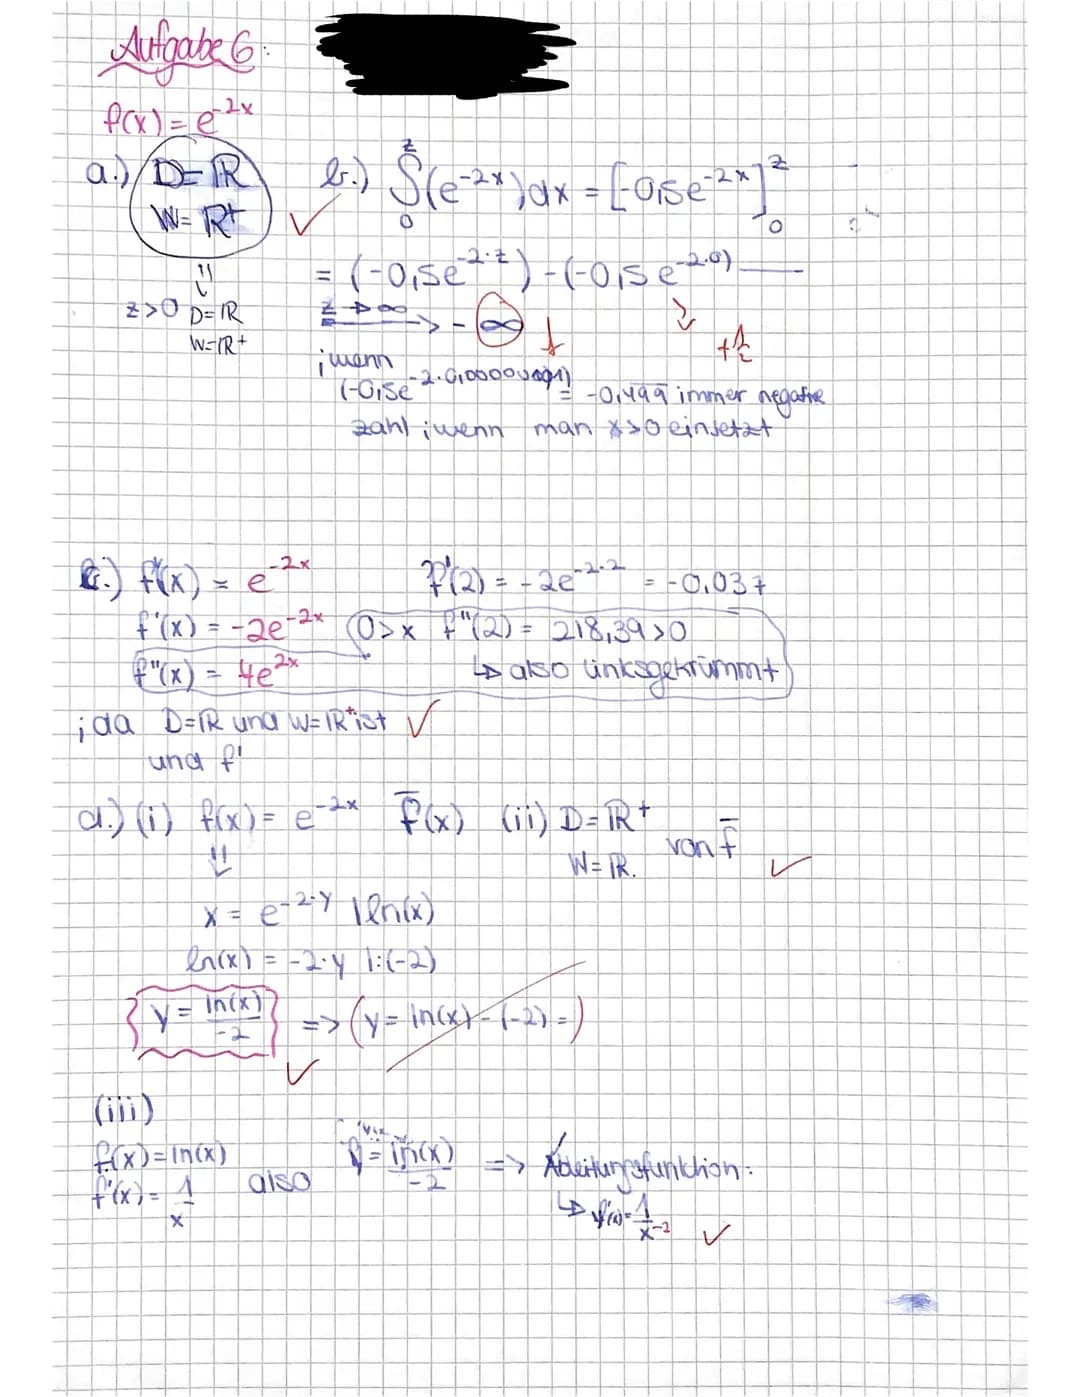 Aufgabe 6:
f(x) = e^-2x
a.) D=ℝ
W=ℝ+
z>0 D=ℝ
W=ℝ+
b.) ∫₀^z (e^-2x)dx = [-0,5e^-2x]₀^z
= (-0,5e^-2·z) - (-0,5e^-2·0)
z→∞ → -∞ f
+1/2
; wenn
(-0,5e^-2·0,00000001) = -0,499 immer negative
zahl ; wenn man x>0 einsetzt
c.) f(x) = e^-2x
f'(2) = -2e^-2·2 = -0,037
f'(x) = -2e^-2x
0>x f"(2) = 218,39>0
f"(x) = 4e^2x
↳ also linksgekrümmt
; da D=ℝ und W=ℝ+ ist
und f'
d.) (i) f(x) = e^-2x f̄(x) (ii) D=ℝ+
W=ℝ. von f̄
x = e^-2·y | ln(x)
ln(x) = -2·y | :(-2)
y = ln(x)/-2 => (y = ln(x) - (-2) = )
(iii)
f(x) = ln(x)
f'(x) = 1/x also
= ln(x)/-2 => Ableitungsfunktion:
↳ = 1/x^-2